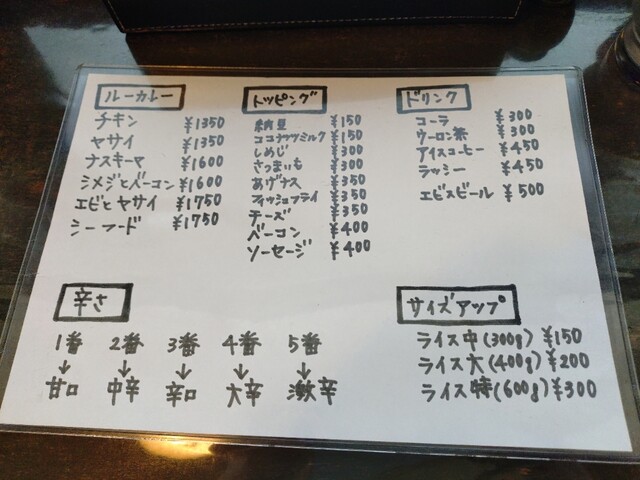 ルーカレー
チキン ¥1350
ヤサイ ¥1350
ナスキーマ ¥1600
シメジとベーコン ¥1600
エビとヤサイ ¥1750
シーフード ¥1750
トッピング
納豆 ¥150
ココナッツミルク ¥150
しめじ ¥300
さつまいも ¥300
あげナス ¥350
フィッシュフライ ¥350
チーズ ¥350
ベーコン ¥400
ソーセージ ¥400
ドリンク
コーラ ¥300
ウーロン茶 ¥300
アイスコーヒー ¥450
ラッシー ¥450
エビスビール ¥500
辛さ
1番 2番 3番 4番 5番
↓ ↓ ↓ ↓ ↓
甘口 中辛 辛口 大辛 激辛
サイズアップ
ライス中(300g) ¥150
ライス大(400g) ¥200
ライス特(600g) ¥300